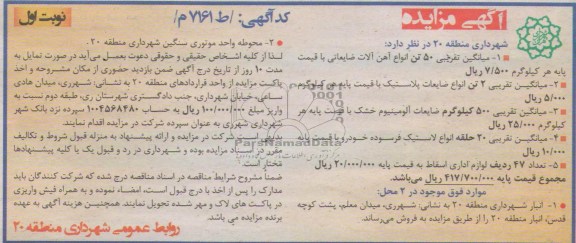 آگهی مزایده
کد آگهی: /ط ۷۱۶۱ م/
نوبت اول
شهرداری منطقه ۲۰ در نظر دارد:
۱- میانگین تقریبی ۵۰ تن انواع آهن آلات ضایعاتی با قیمت
پایه هر کیلوگرم ۷/۵۰۰ ریال
۲- میانگین تقریبی ۲ تن انواع ضایعات پلاستیک با قیمت پایه هر کیلوگرم
۵/۰۰۰ ریال
۳- میانگین تقریبی ۵۰۰ کیلوگرم ضایعات آلومینیوم خشک با قیمت پایه هر
کیلوگرم ۲۵/۰۰۰ ریال
۴- میانگین تقریبی ۳۰ حلقه انواع لاستیک فرسوده خودرو با قیمت پایه
۱۰/۰۰۰ ریال
۵- تعداد ۴۷ ردیف لوازم اداری اسقاط به قیمت پایه ۲۰/۰۰۰/۰۰۰ ریال
مجموع قیمت پایه ۴۱۷/۷۰۰/۰۰۰ ریال می‌باشد.
موارد فوق موجود در ۲ محل:
۱- انبار شهرداری منطقه ۲۰ به نشانی: شهرری، میدان معلم، پشت کوچه
قدس، انبار منطقه ۲۰ را از طریق مزایده به فروش می‌رساند.
۲- محوطه واحد موتوری سنگین شهرداری منطقه ۲۰.
لذا از کلیه اشخاص حقیقی و حقوقی دعوت بعمل می‌آید در صورت تمایل به
مدت ۱۰ روز از تاریخ درج آگهی ضمن بازدید حضوری از مکان مشروحه و اخذ
پاکت مزایده از واحد قراردادهای منطقه ۲۰ به نشانی: شهرری، میدان هادی
ساعی، خیابان شهرداری، جنب دادگستری شهرستان ری، طبقه دوم نسبت به
واریز مبلغ ۱۰۰/۰۰۰/۰۰۰ ریال به حساب ۱۰۰۴۵۶۸۴۸۰ سپرده نزد بانک شهر
شهرداری شهرری به عنوان سپرده شرکت در مزایده اقدام نمایند.
بدیهی است شرکت در مزایده و ارائه پیشنهاد به منزله قبول شروط و تکالیف
مقرر در اسناد مزایده بوده و شهرداری در رد و قبول یک یا کلیه پیشنهادها
مختار است.
ضمناً مشروح شرایط مناقصه در اسناد مناقصه درج شده که شرکت کنندگان باید
مدارک را پس از اخذ با درج قبول است، امضاء نموده و به همراه فیش واریزی
در پاکت های لاک و مهر شده تحویل نمایند. همچنین هزینه آگهی به عهده
برنده مزایده می باشد.
روابط عمومی شهرداری منطقه ۲۰
ParsNamadData